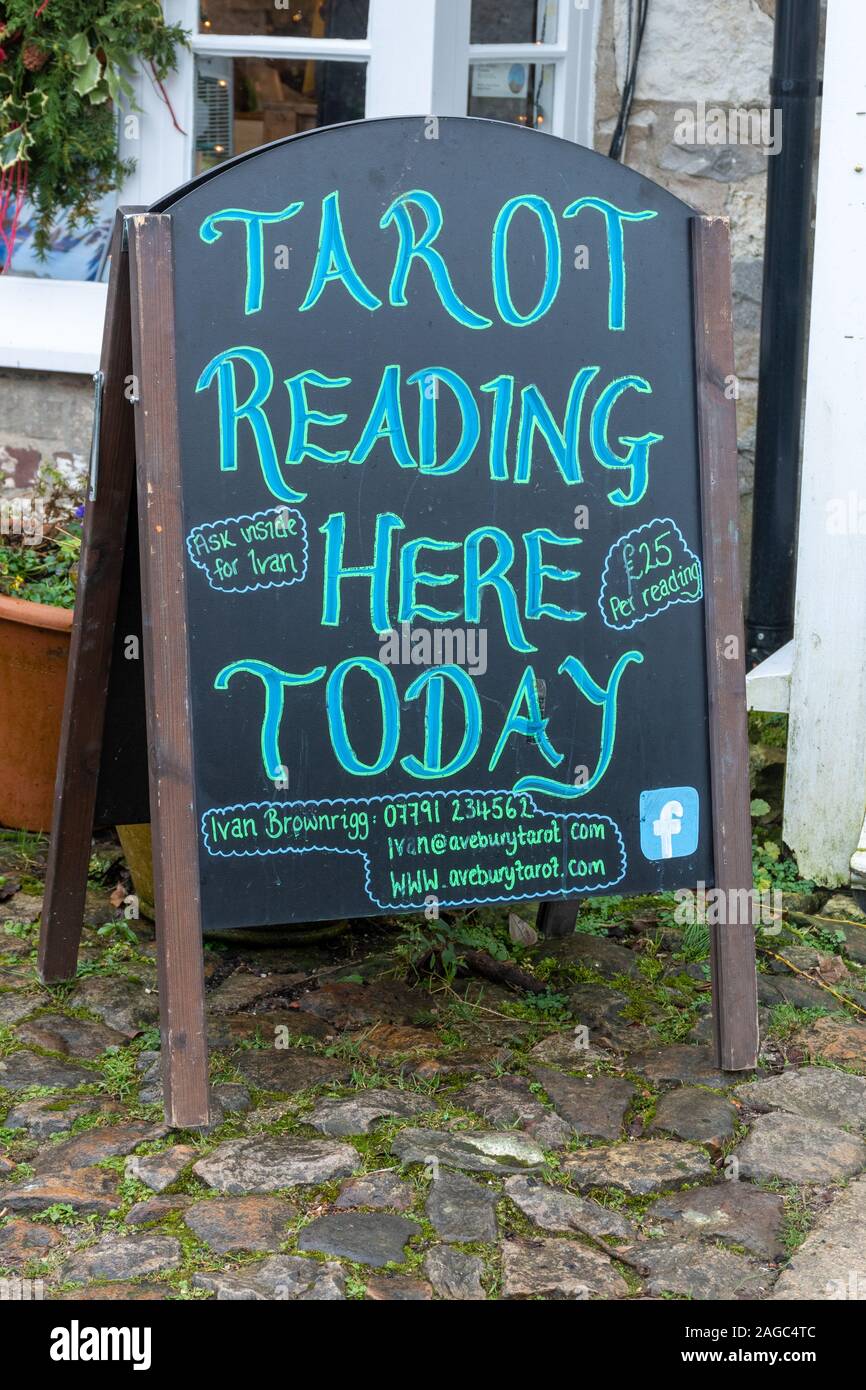 TAROT
READING
Ask inside
for Ivan
HERE
£25
Per reading
TODAY
Ivan Brownrigg: 07791 234562
Ivan@aveburytarot.com
WWW.aveburytarot.com
f
alamy
Image ID: 2AGC4TC
www.alamy.com